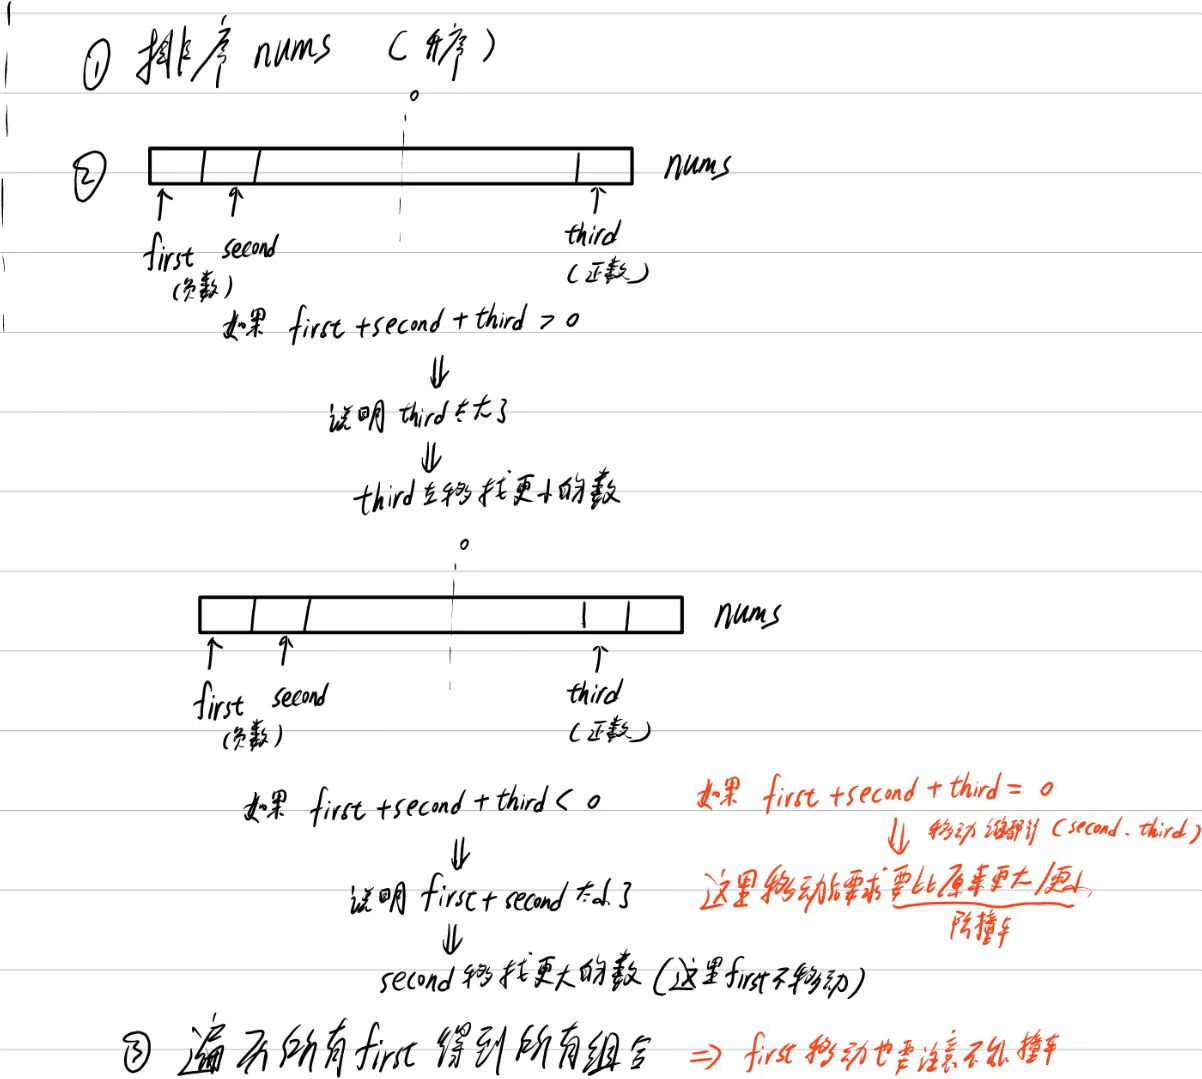 ① 排序 nums (升序)
0
② nums
first second third
(负数) (正数)
如果 first+second+third > 0
⇓
说明 third 太大了
⇓
third 左移找更小的数
0
nums
first second third
(负数) (正数)
如果 first+second+third < 0
⇓
说明 first+second 太小了
⇓
second 移找更大的数 (这里first不移动)
如果 first+second+third = 0
⇓ 移动 (second、third)
这里移动后要求要比原来更大/更小
防撞车
③ 遍历所有first 得到所有组合 ⇒ first 移动也要注意不能撞车